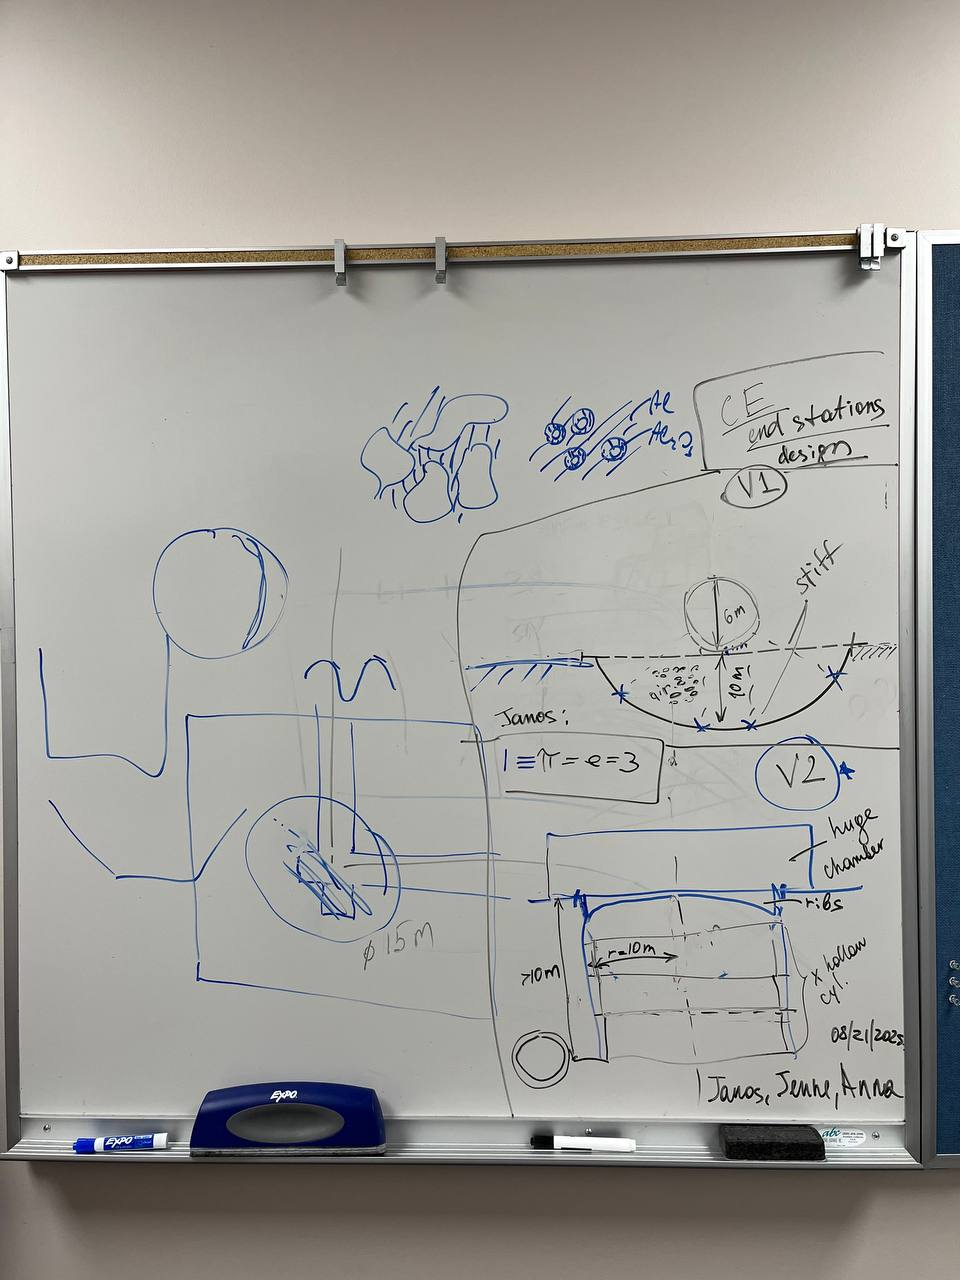 Al
Al₂O₃
CE
end stations
design
V1
stiff
6m
10m
Janos:
1≡π=e=3
V2
huge
chamber
ribs
r=10m
>10m
x hollow
cyl.
ø15M
08/21/2025
Janos, Jenne, Anna
EXPO
EXPO
abc